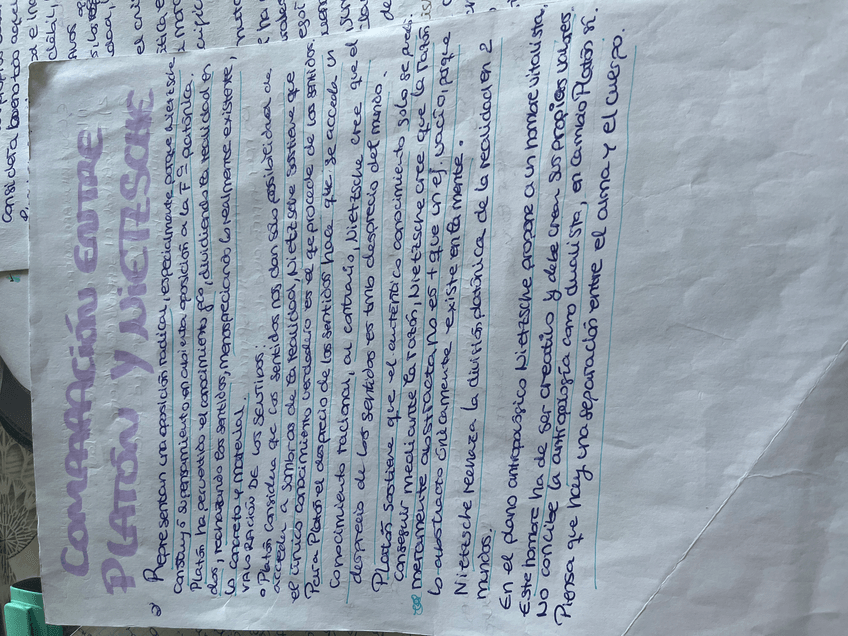 COMPARACIÓN ENTRE
PLATÓN Y NIETZSCHE
Representan una oposición radical, especialmente porque Nietzsche
construyó su pensamiento en abierta oposición a la Fª platónica.
Platón ha pervertido el conocimiento fco, dividiendo la realidad en
dos, rechazando los sentidos, menospreciando lo realmente existente,
lo concreto y material.
VALORACIÓN DE LOS SENTIDOS:
o Platón considera que los sentidos nos dan solo posibilidad de
acceder a sombras de la realidad, Nietzsche sostiene que
el único conocimiento verdadero es el que procede de los sentidos.
Para Platón el desprecio de los sentidos hace que se acceda un
conocimiento racional, al contrario, Nietzsche cree que el
desprecio de los sentidos es tmb desprecio del mundo.
Platón sostiene que el auténtico conocimiento solo se pued
conseguir mediante la razón, Nietzsche cree que la razón
meramente abstracta no es + que un ej. vacío, porque
lo abstracto únicamente existe en la mente.
Nietzsche rechaza la división platónica de la realidad en 2
mundos.
En el plano antropológico Nietzsche propone a un hombre vitalista.
Este hombre ha de ser creativo y debe crear sus propios valores.
No concibe la antropología como dualista, en cambio Platón sí.
Piensa que hay una separación entre el alma y el cuerpo.